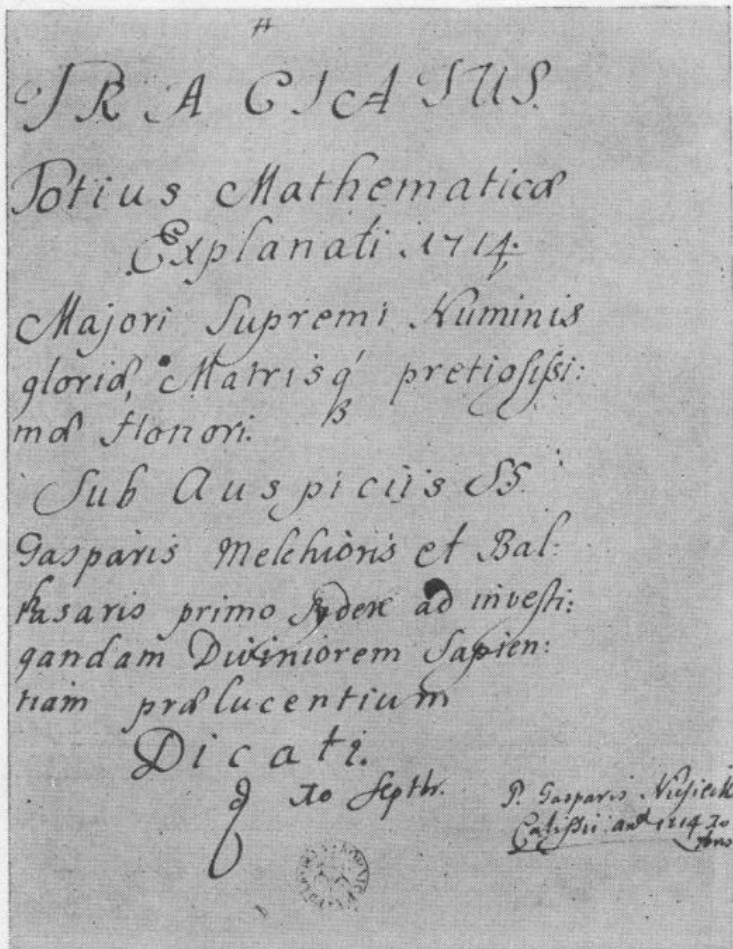 TRACTATUS.
Totius Mathematicæ
Explanati. 1714.
Majori Supremi Numinis
gloriæ, Matrisq́ pretiosissi:
mæ Honori.
Sub Auspicijs SS.
Gasparis Melchioris et Bal:
tasaris primo Sydere ad investi:
gandam Diviniorem Sapien:
tiam prælucentium
Dicati.
Septbr.
P. Gasparis
Calissii 1714